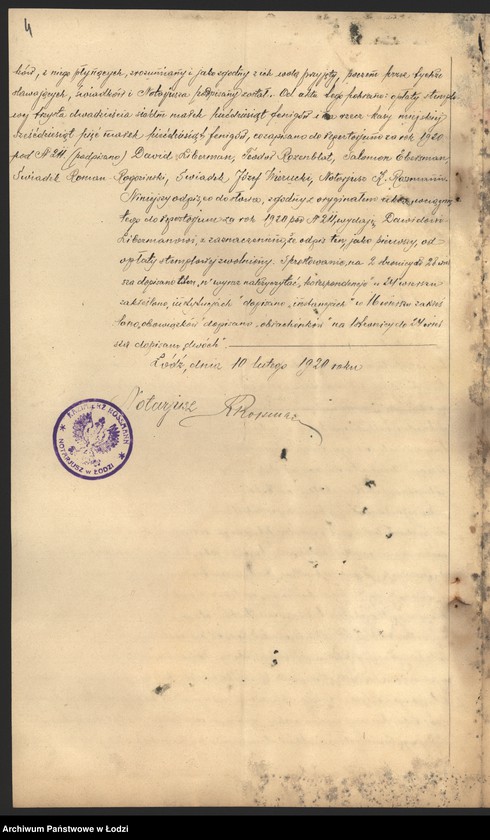 4
ków, z niego płynących, zrozumiany i jako zgodny z ich wolą przyjęty, poczem przez tychże
stawających, świadków i Notarjusza podpisany został. Od aktu tego pobrano: opłaty stemplo-
wej trzysta dwadzieścia siedm marek pięćdziesiąt fenigów i na rzecz kasy miejskiej
sześćdziesiąt pięć marek pięćdziesiąt fenigów, co zapisano do repertorjum za rok 1920
pod № 211, (podpisano) Dawid Liberman, Teodor Rozenblat, Salomon Eberman,
Świadek Roman Rogoziński, Świadek Józef Wierucki, Notarjusz K. Rossmann.
Niniejszy odpis co do słowa, zgodny z oryginałem aktu, wciągnię-
tego do repertorjum za rok 1920 pod № 211, wydaję Dawidowi
Libermanowi, z zaznaczeniem, że odpis ten, jako pierwszy, od
opłaty stemplowej zwolniony. Sprostowanie, na 2 stronicy do 28 wier-
sza dopisano w wyraz należy czytać "korespondencje" w 34 wierszu
zakreślono, dopisano w 16 wierszu zakreś-
lono "obowiązków" dopisano "obrachunków" na stronicy do 24 wier-
sza dopisano "dwóch".
Łódź, dnia 10 lutego 1920 roku
Notarjusz KRossmann
KAZIMIERZ ROSSMANN
NOTARJUSZ w ŁODZI
Archiwum Państwowe w Łodzi